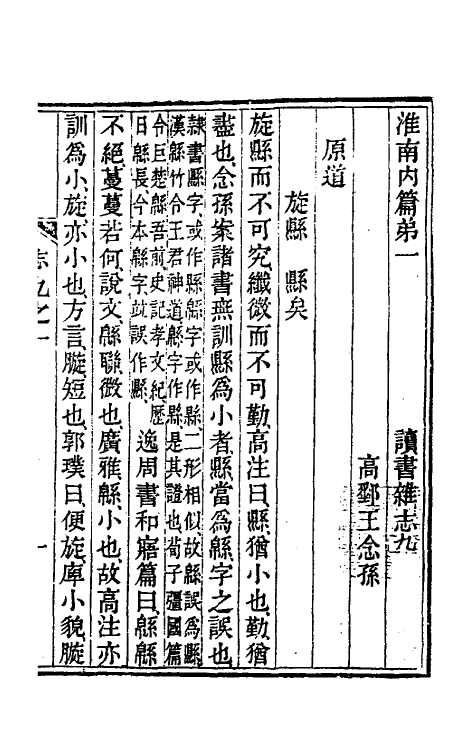 淮南内篇弟一
讀書雜志九
高郵王念孫
原道
旋縣 縣矣
旋縣而不可究纖微而不可勤高注曰縣猶小也勤猶
盡也念孫案諸書無訓縣爲小者縣當爲緜字之誤也
隷書縣字或作縣緜字或作緜二形相似故緜誤爲縣
漢縣竹令王君神道緜字作縣是其證也荀子彊國篇
今巨楚縣吾前史記孝文紀歷
日緜長今本緜字竝誤作縣
逸周書和寤篇曰緜緜
不絕蔓蔓若何說文緜聯微也廣雅緜小也故高注亦
訓爲小旋亦小也方言䏉短也郭璞曰便旋庳小貌䏉
志九之一
一